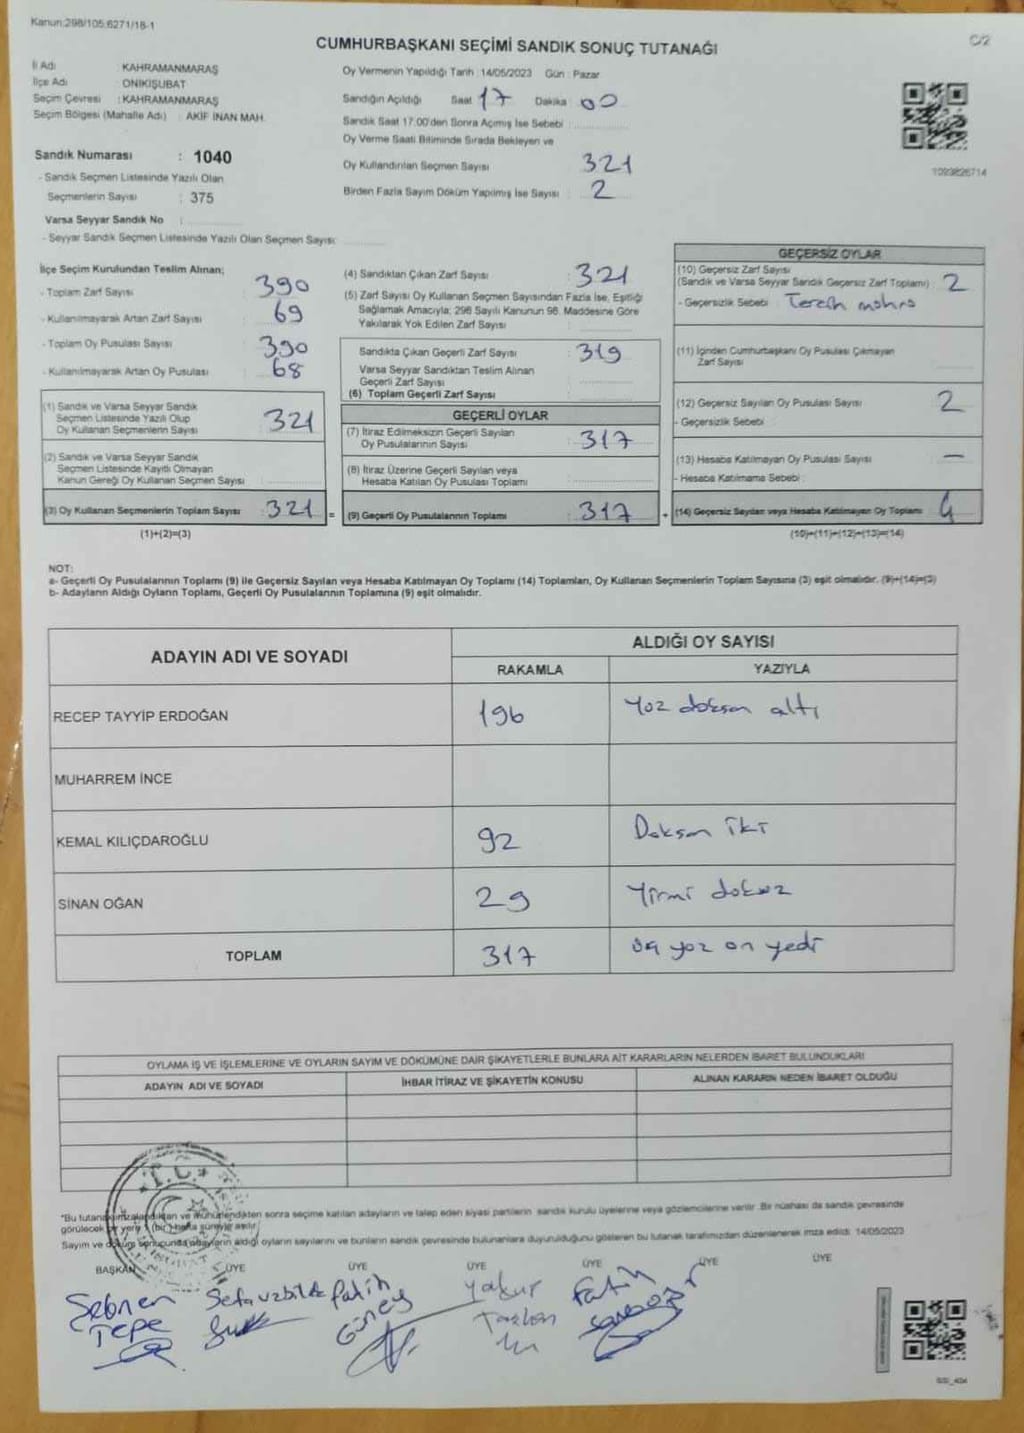 Kanun:298/105,6271/18-1
C/2
CUMHURBAŞKANI SEÇİMİ SANDIK SONUÇ TUTANAĞI
İl Adı : KAHRAMANMARAŞ
İlçe Adı : ONİKİŞUBAT
Seçim Çevresi : KAHRAMANMARAŞ
Seçim Bölgesi (Mahalle Adı) : AKİF İNAN MAH.
Sandık Numarası : 1040
- Sandık Seçmen Listesinde Yazılı Olan
Seçmenlerin Sayısı : 375
Varsa Seyyar Sandık No :
- Seyyar Sandık Seçmen Listesinde Yazılı Olan Seçmen Sayısı:
Oy Vermenin Yapıldığı Tarih :14/05/2023 Gün : Pazar
Sandığın Açıldığı Saat 17 Dakika : 00
Sandık Saat 17:00'den Sonra Açılmış İse Sebebi :
Oy Verme Saati Bitiminde Sırada Bekleyen ve
Oy Kullandırılan Seçmen Sayısı 321
Birden Fazla Sayım Döküm Yapılmış İse Sayısı : 2
1093826714
İlçe Seçim Kurulundan Teslim Alınan;
- Toplam Zarf Sayısı : 390
- Kullanılmayarak Artan Zarf Sayısı : 69
- Toplam Oy Pusulası Sayısı : 390
- Kullanılmayarak Artan Oy Pusulası : 68
(1) Sandık ve Varsa Seyyar Sandık
Seçmen Listesinde Yazılı Olup
Oy Kullanan Seçmenlerin Sayısı : 321
(2) Sandık ve Varsa Seyyar Sandık
Seçmen Listesinde Kayıtlı Olmayan
Kanun Gereği Oy Kullanan Seçmen Sayısı :
(3) Oy Kullanan Seçmenlerin Toplam Sayısı : 321 =
(1)+(2)=(3)
(4) Sandıktan Çıkan Zarf Sayısı : 321
(5) Zarf Sayısı Oy Kullanan Seçmen Sayısından Fazla İse, Eşitliği
Sağlamak Amacıyla; 298 Sayılı Kanunun 98. Maddesine Göre
Yakılarak Yok Edilen Zarf Sayısı :
Sandıkta Çıkan Geçerli Zarf Sayısı : 319
Varsa Seyyar Sandıktan Teslim Alınan
Geçerli Zarf Sayısı :
(6) Toplam Geçerli Zarf Sayısı :
GEÇERLİ OYLAR
(7) İtiraz Edilmeksizin Geçerli Sayılan
Oy Pusulalarının Sayısı : 317
(8) İtiraz Üzerine Geçerli Sayılan veya
Hesaba Katılan Oy Pusulası Toplamı :
(9) Geçerli Oy Pusulalarının Toplamı : 317 +
GEÇERSİZ OYLAR
(10) Geçersiz Zarf Sayısı
(Sandık ve Varsa Seyyar Sandık Geçersiz Zarf Toplamı) : 2
- Geçersizlik Sebebi : Tercih mührü
(11) İçinden Cumhurbaşkanı Oy Pusulası Çıkmayan
Zarf Sayısı :
(12) Geçersiz Sayılan Oy Pusulası Sayısı : 2
- Geçersizlik Sebebi :
(13) Hesaba Katılmayan Oy Pusulası Sayısı : —
- Hesaba Katılmama Sebebi :
(14) Geçersiz Sayılan veya Hesaba Katılmayan Oy Toplamı : 4
(10)+(11)+(12)+(13)=(14)
NOT:
a- Geçerli Oy Pusulalarının Toplamı (9) ile Geçersiz Sayılan veya Hesaba Katılmayan Oy Toplamı (14) Toplamları, Oy Kullanan Seçmenlerin Toplam Sayısına (3) eşit olmalıdır. (9)+(14)=(3)
b- Adayların Aldığı Oyların Toplamı, Geçerli Oy Pusulalarının Toplamına (9) eşit olmalıdır.
ADAYIN ADI VE SOYADI
ALDIĞI OY SAYISI
RAKAMLA YAZIYLA
RECEP TAYYİP ERDOĞAN 196 Yüz doksan altı
MUHARREM İNCE
KEMAL KILIÇDAROĞLU 92 Doksan iki
SİNAN OĞAN 29 Yirmi dokuz
TOPLAM 317 üç yüz on yedi
OYLAMA İŞ VE İŞLEMLERİNE VE OYLARIN SAYIM VE DÖKÜMÜNE DAİR ŞİKAYETLERLE BUNLARA AİT KARARLARIN NELERDEN İBARET BULUNDUKLARI
ADAYIN ADI VE SOYADI İHBAR İTİRAZ VE ŞİKAYETİN KONUSU ALINAN KARARIN NEDEN İBARET OLDUĞU
T.C.
*Bu tutanak imzalandıktan ve mühürlendikten sonra seçime katılan adayların ve talep eden siyasi partilerin sandık kurulu üyelerine veya gözlemcilerine verilir .Bir nüshası da sandık çevresinde
görülecek bir yere 1 (bir) hafta süreyle asılır.
Sayım ve döküm sonucunda adayların aldığı oyların sayılarını ve bunların sandık çevresinde bulunanlara duyurulduğunu gösteren bu tutanak tarafımızdan düzenlenerek imza edildi. 14/05/2023
BAŞKAN ÜYE ÜYE ÜYE ÜYE ÜYE ÜYE
Şebnem Tepe
Fatih Güney
Yakup
Fatih